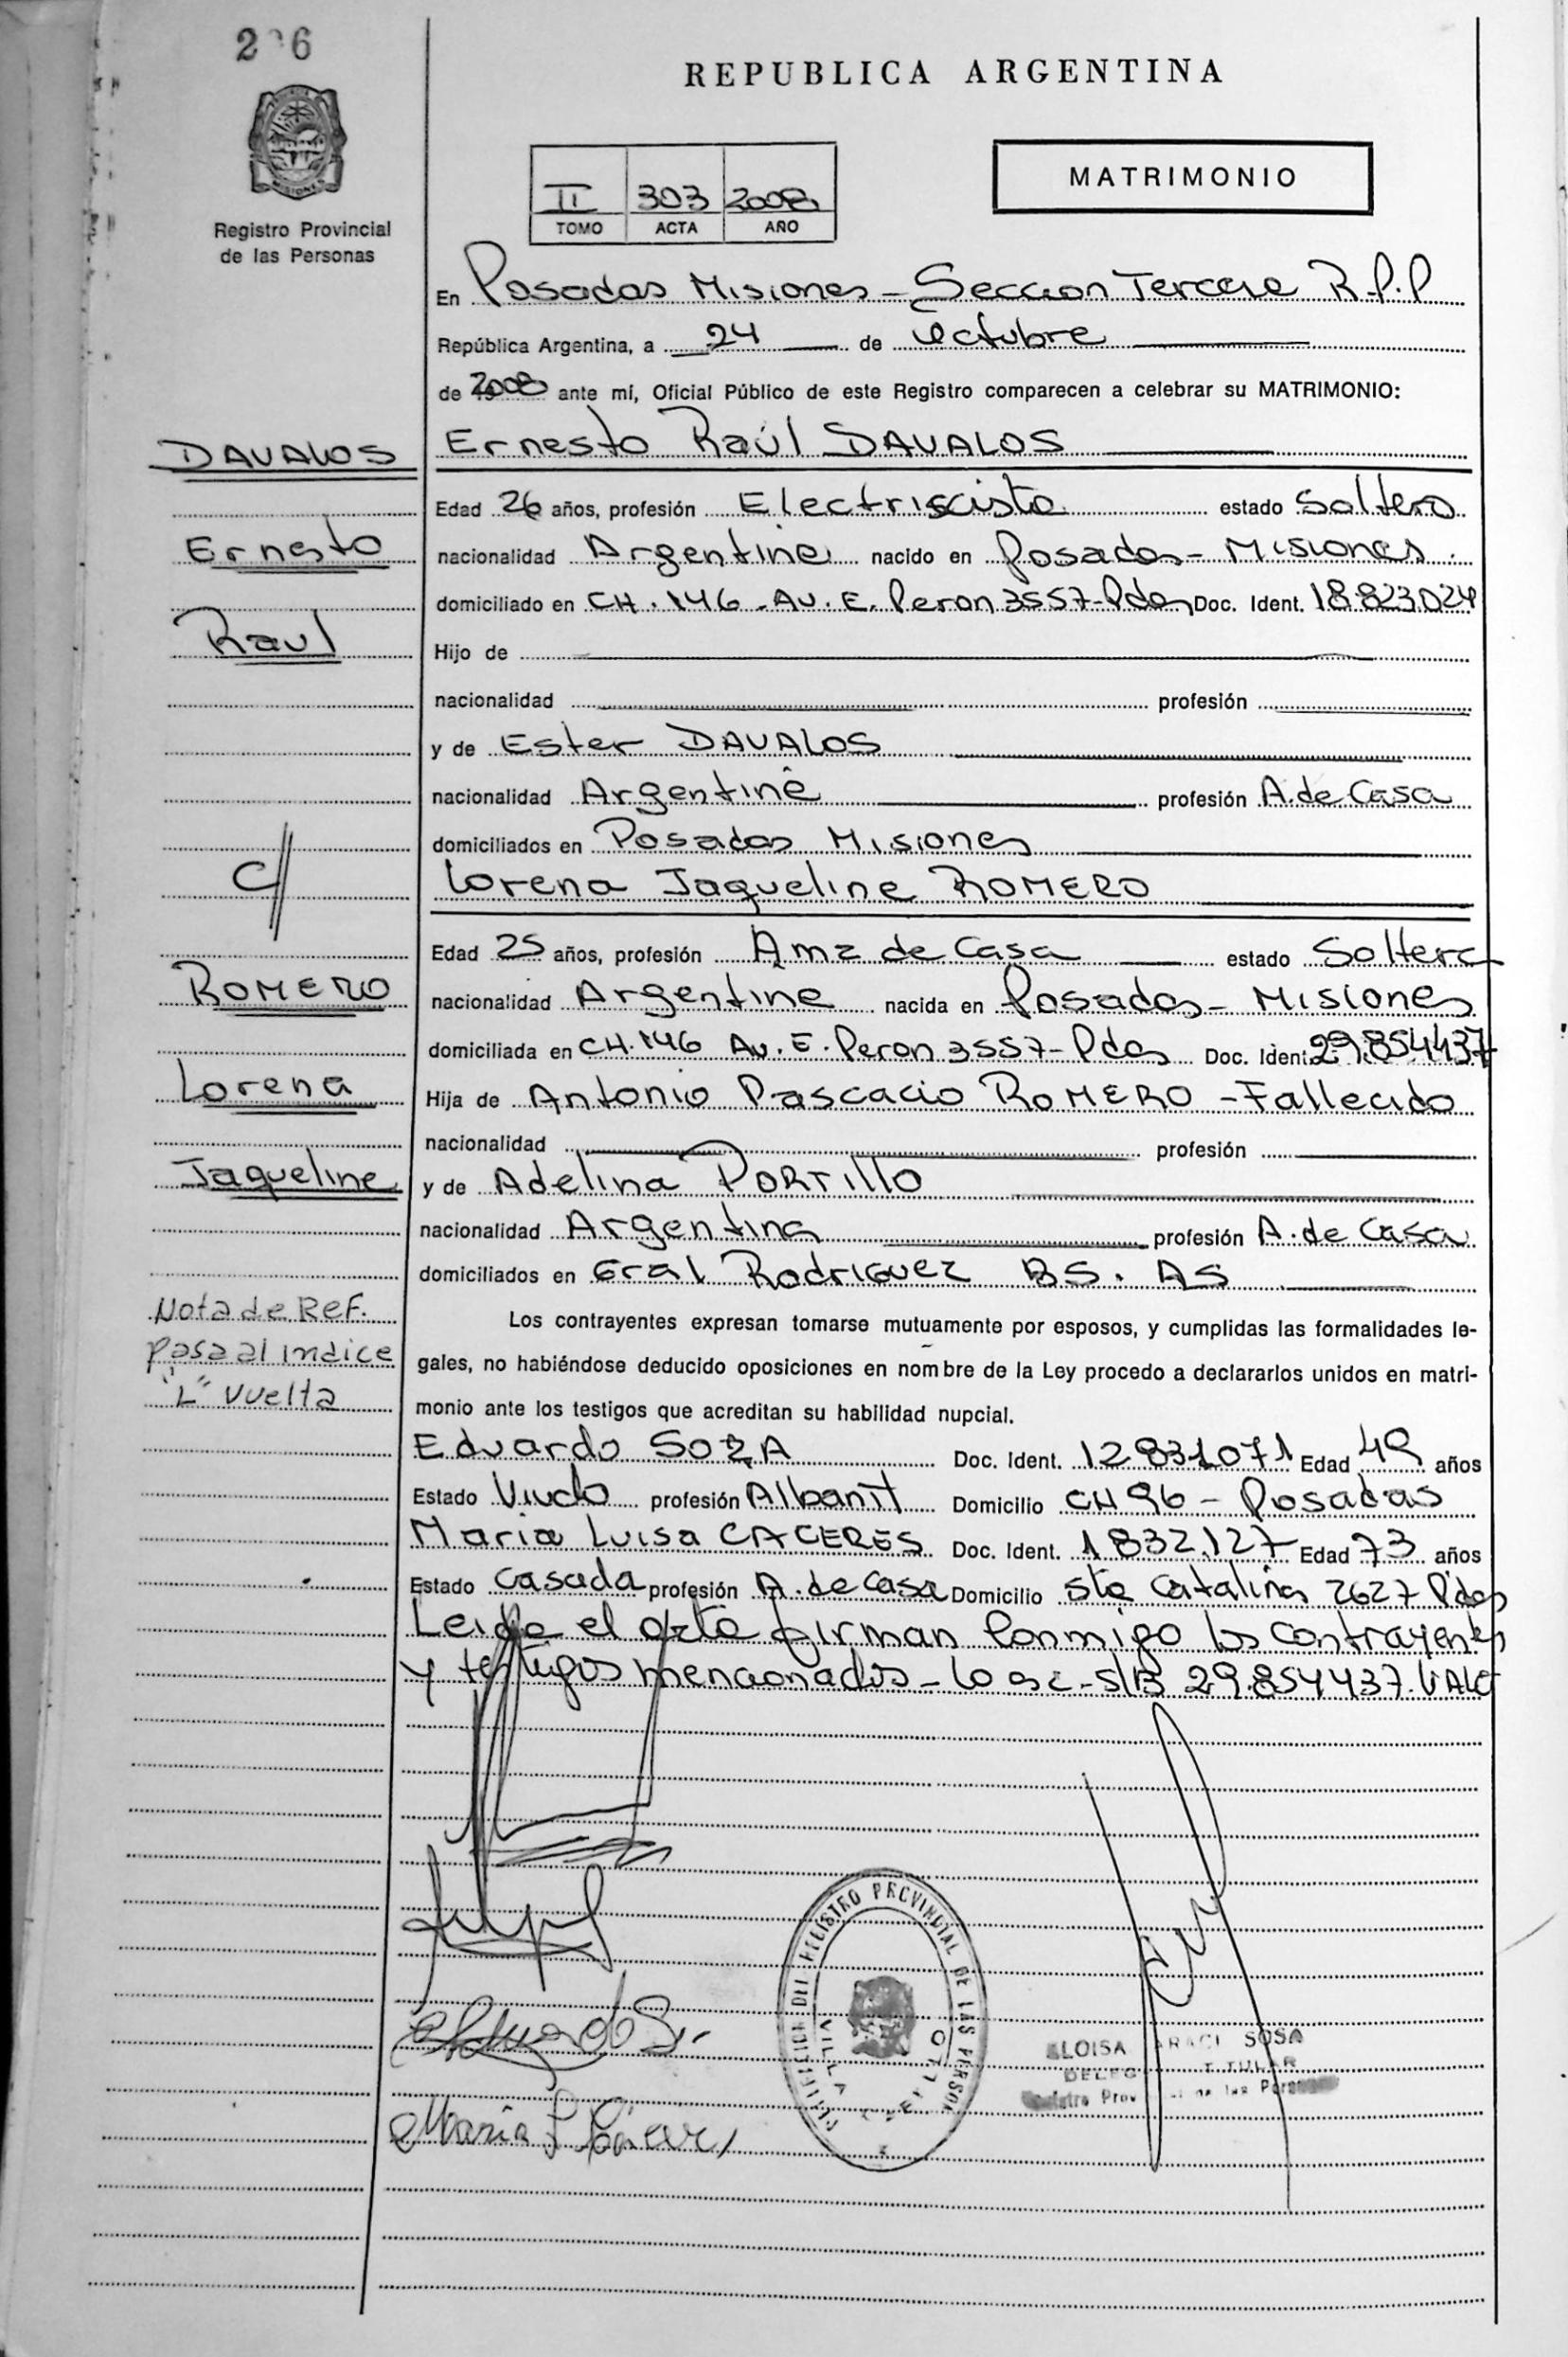 REPUBLICA ARGENTINA
MATRIMONIO
II 303 2008
TOMO ACTA AÑO
Registro Provincial
de las Personas
En Posadas Misiones - Seccion Tercera R.P.P
República Argentina, a 24 de Octubre
de 2008 ante mí, Oficial Público de este Registro comparecen a celebrar su MATRIMONIO:
DAVALOS
Ernesto
Raul
Ernesto Raúl DAVALOS
Edad 26 años, profesión Electriscista estado Soltero
nacionalidad Argentina nacido en Posadas - Misiones.
domiciliado en CH. 146 - Av. E. Peron 3557- Pdas Doc. Ident. 18.823.024
Hijo de
nacionalidad profesión
y de Ester DAVALOS
nacionalidad Argentina profesión A. de Casa
domiciliados en Posadas Misiones
C//
ROMERO
Lorena
Jaqueline
Lorena Jaqueline ROMERO
Edad 25 años, profesión Ama de Casa estado Soltera
nacionalidad Argentina nacida en Posadas - Misiones
domiciliada en CH. 146 Av. E. Peron 3557- Pdas Doc. Ident. 29.854437
Hija de Antonio Pascacio ROMERO - Fallecido
nacionalidad profesión
y de Adelina PORTILLO
nacionalidad Argentina profesión A. de Casa
domiciliados en Gral Rodriguez BS. AS
Nota de Ref.
pasa al indice
"L" vuelta
Los contrayentes expresan tomarse mutuamente por esposos, y cumplidas las formalidades le-
gales, no habiéndose deducido oposiciones en nombre de la Ley procedo a declararlos unidos en matri-
monio ante los testigos que acreditan su habilidad nupcial.
Eduardo SOZA Doc. Ident. 12831071 Edad 49 años
Estado Viudo profesión Albanil Domicilio CH 96 - Posadas
Maria Luisa CACERES Doc. Ident. 1832.127 Edad 73 años
Estado Casada profesión A. de Casa Domicilio Sta Catalina 2627 Pdas
Leida el acta firman Conmigo los contrayentes
y testigos mencionados - S/B 29.854437. VALE
REGISTRO PROVINCIAL DE LAS PERSONAS
SOSA